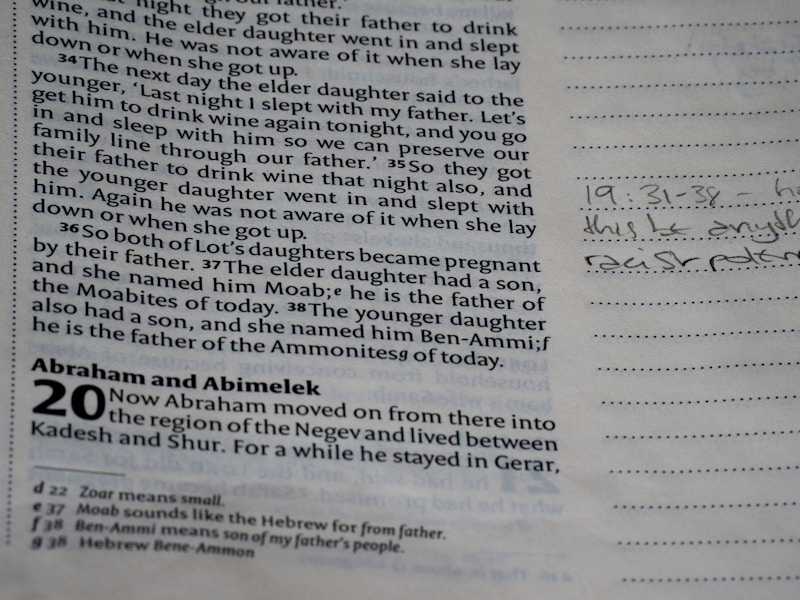 night they got their father to drink
wine, and the elder daughter went in and slept
with him. He was not aware of it when she lay
down or when she got up.
34 The next day the elder daughter said to the
younger, ‘Last night I slept with my father. Let’s
get him to drink wine again tonight, and you go
in and sleep with him so we can preserve our
family line through our father.’ 35 So they got
their father to drink wine that night also, and
the younger daughter went in and slept with
him. Again he was not aware of it when she lay
down or when she got up.
36 So both of Lot’s daughters became pregnant
by their father. 37 The elder daughter had a son,
and she named him Moab;e he is the father of
the Moabites of today. 38 The younger daughter
also had a son, and she named him Ben-Ammi;f
he is the father of the Ammonitesg of today.
Abraham and Abimelek
20 Now Abraham moved on from there into
the region of the Negev and lived between
Kadesh and Shur. For a while he stayed in Gerar,
d 22 Zoar means small.
e 37 Moab sounds like the Hebrew for from father.
f 38 Ben-Ammi means son of my father’s people.
g 38 Hebrew Bene-Ammon
19:31-38 -
this be
racist